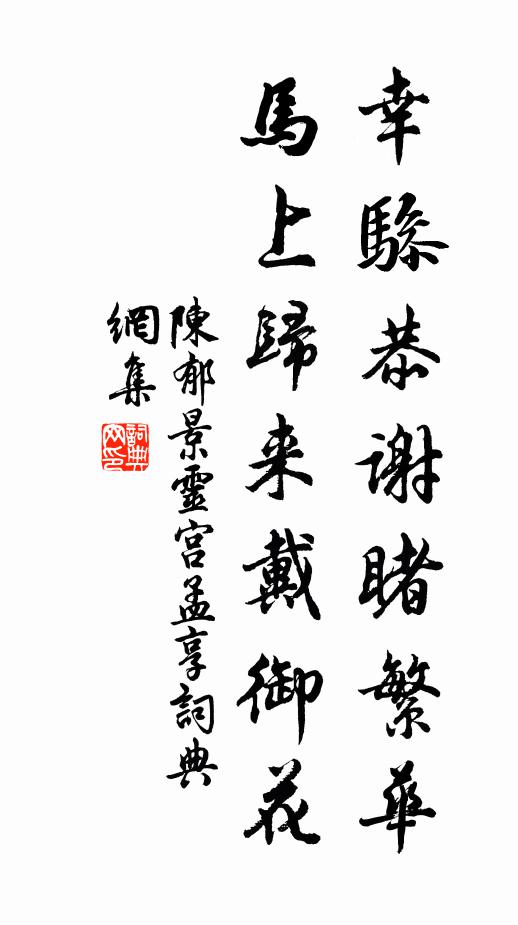 幸驂恭谢睹繁華
馬上歸来戴御花
陳郁景靈宫孟享詞典
網集
詞典网印